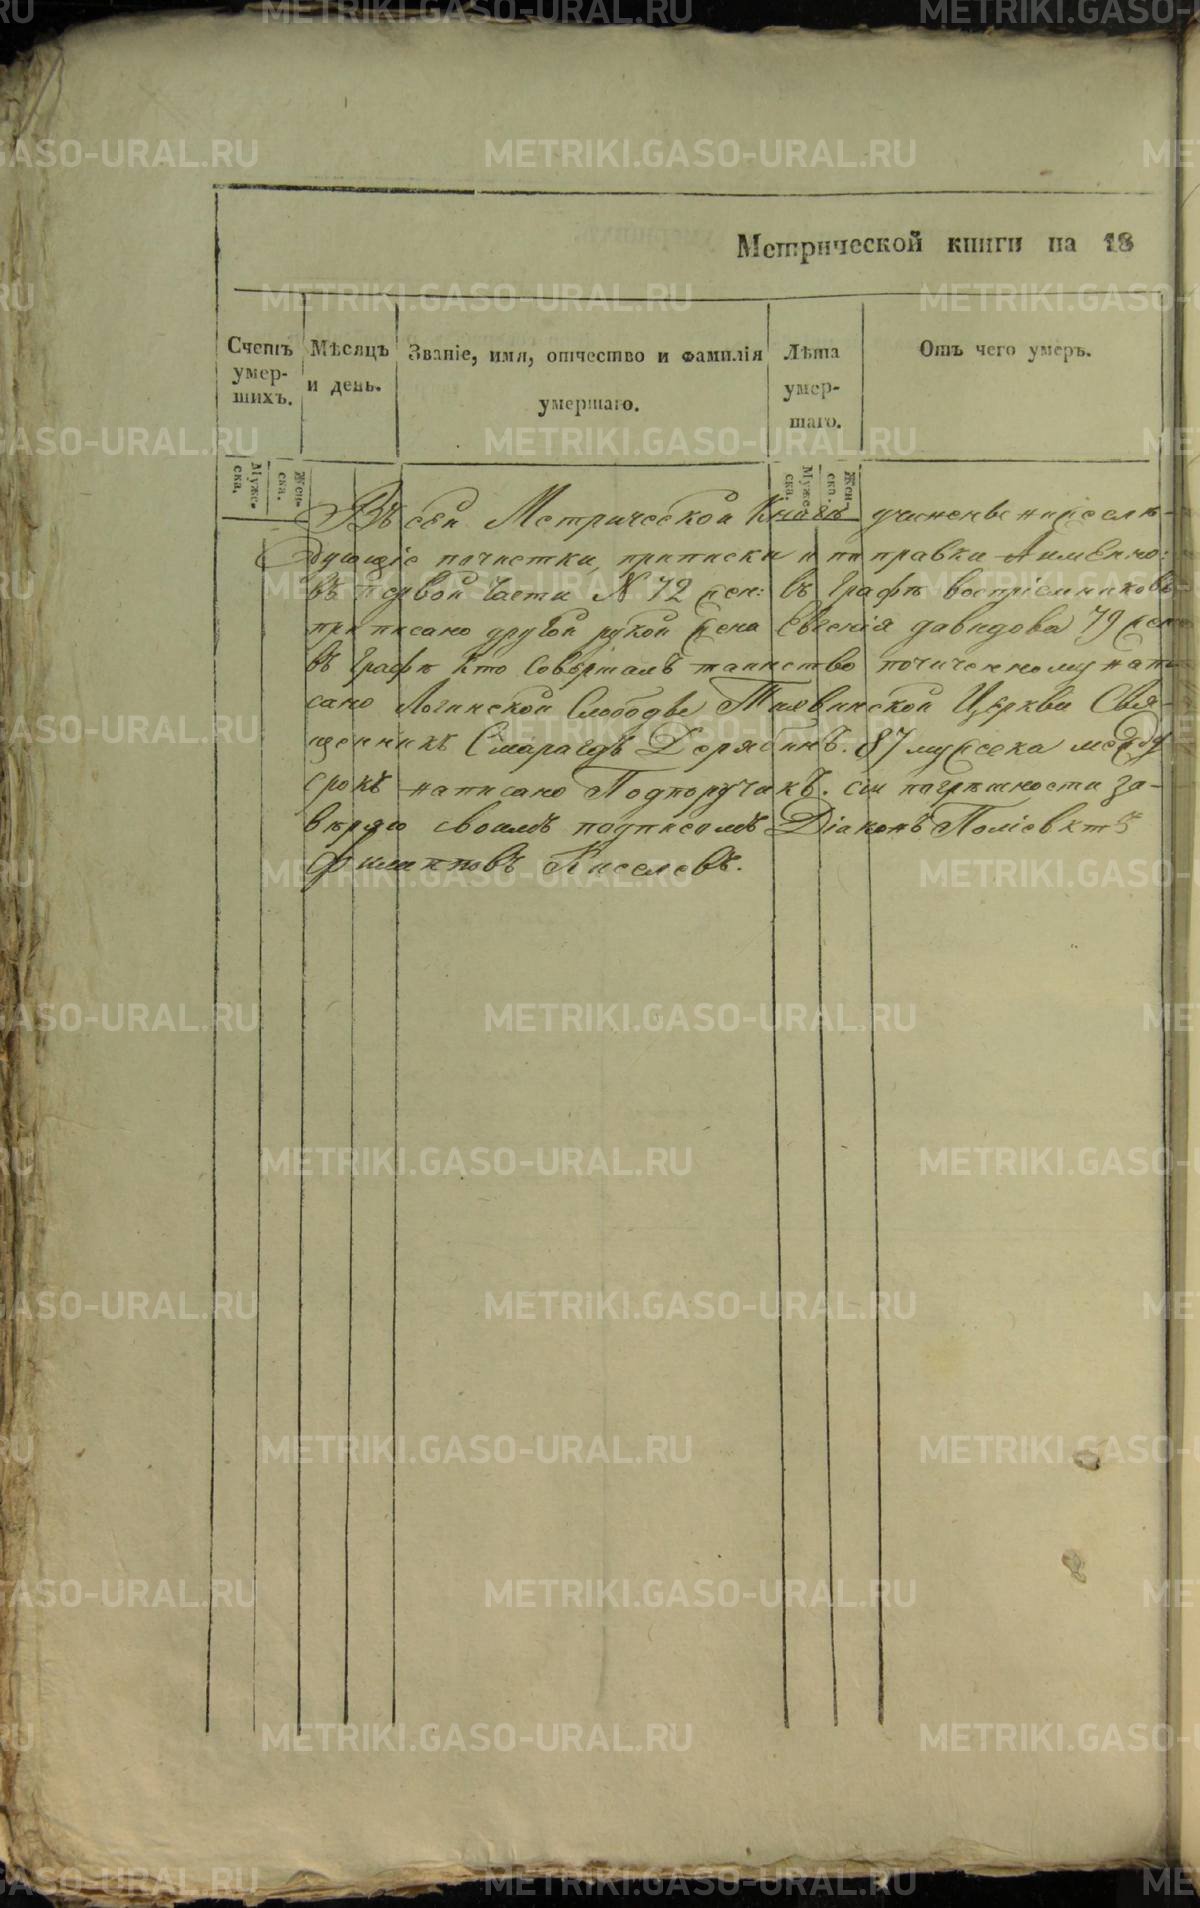 METRIKI.GASO-URAL.RU
Метрической книги на 18
Счетъ умер-шихъ.
Мѣсяцъ и день.
Званіе, имя, отчество и фамилія умершаго.
Лѣта умер-шаго.
Отъ чего умеръ.
Муже-ска.
Жен-ска.
Муже-ска.
Жен-ска.
Въ сей Метрической Книгѣ учиненые нижеслѣ-
дующіе почистки, приписки и поправки Аименно:
въ первой части N 72 жен: въ графѣ воспріемниковъ
приписано другой рукой жена Евгенія давидова 79 жен
въ графѣ Кто Совѣршалъ таинство почищенному напи
сано Логинской Слободѣ Церкви Свя-
щенникъ Смарагдъ Дерябинъ. 87 мужеска между
срокъ написано Подпоручикъ. сіи погрѣшности за-
вѣряю своимъ подписомъ Діаконъ Поліевктъ
Филипповъ Киселевъ.